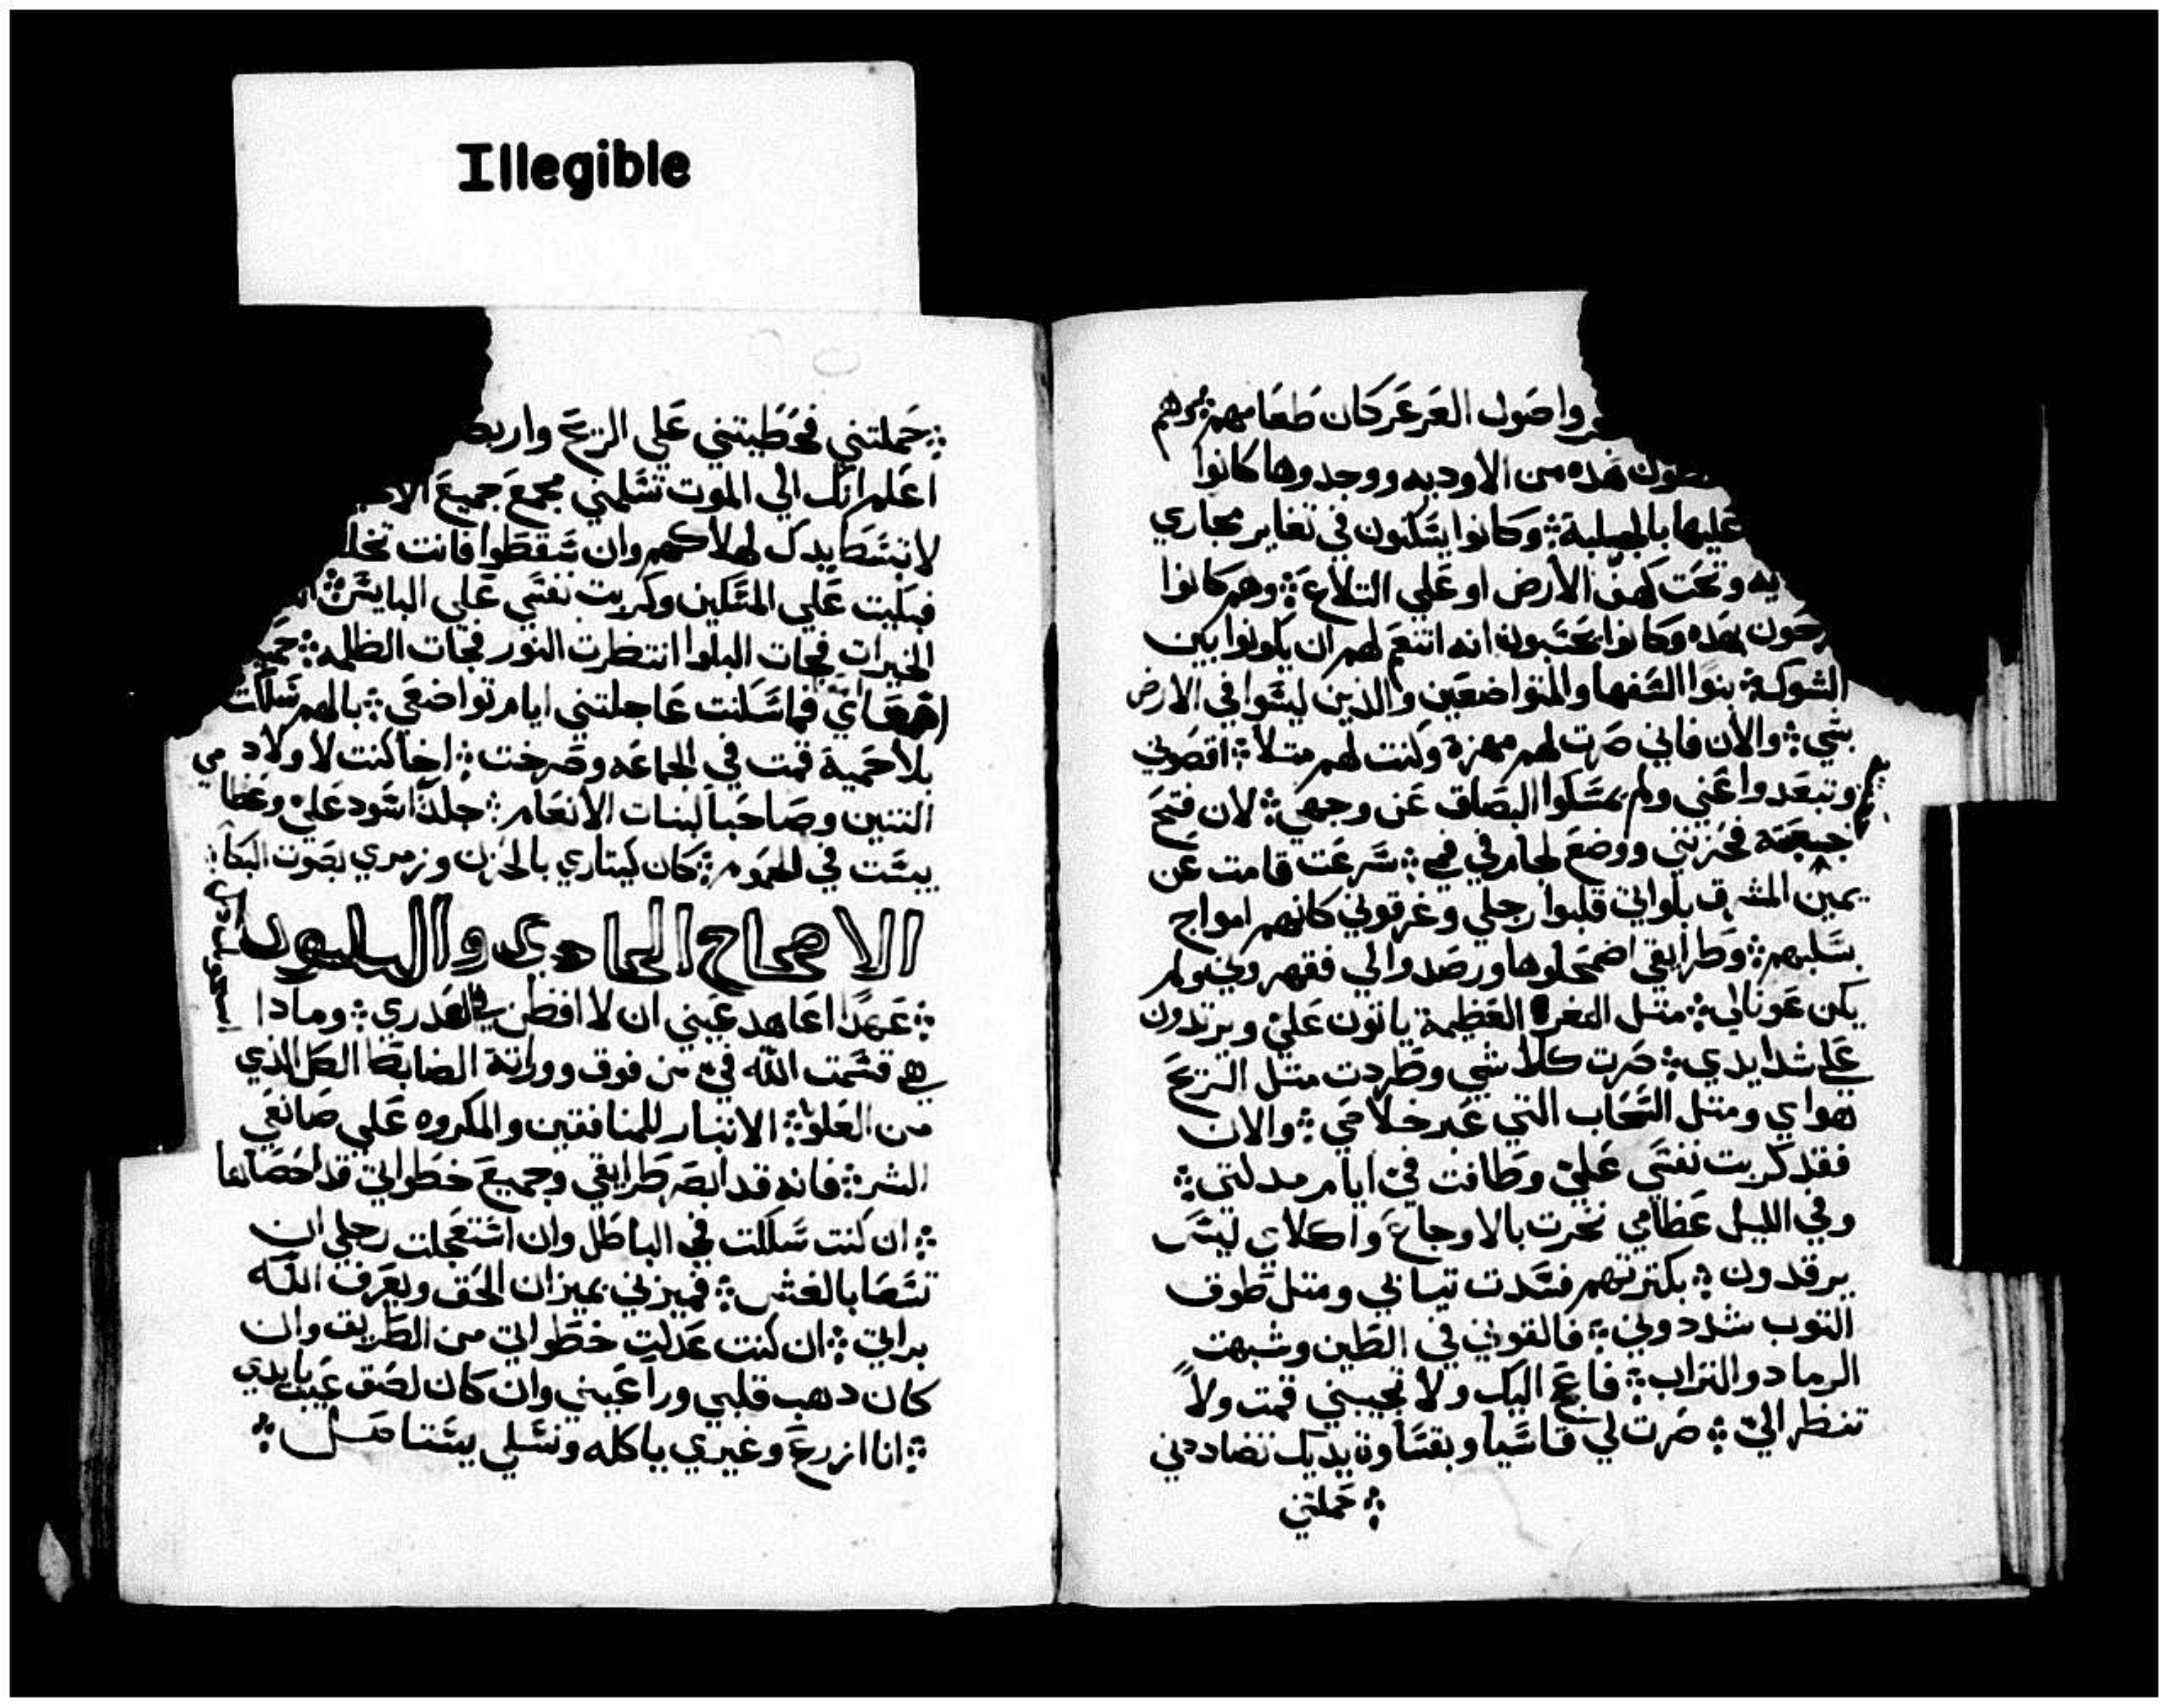 Illegible
واصول العرعر كان طعامهم ⁘ وهم
هذه من الاوديه ووجدوها كانوا
عليها بالجلبة ⁘ وكانوا يسكنون في تغاير مجاري
وتحت كهف الارض او علي التلاع ⁘ وهم كانوا
بهذه وكانوا يحسبون انه انتعم لهم ان يكونوا بين
الشوكة ⁘ بنوا السفها والمتواضعين والذين ليسوا في الارض
بشي ⁘ والان فاني صرت لهم مهزة وكنت لهم متلا ⁘ اقصوني
وتبعدوا عني ولم يمسكوا البصاق عن وجهي ⁘ لان فتح
فحزنني ووضع لجام في في ⁘ سرعت قامت عن
يمين المشرق بلواتي قلبوا رجلي وغرقوني كانهم امواج
بسلبهم ⁘ وطرايقي اضمحلوها ورصدوا لي فقهروني ولم
يكن عونا لي ⁘ متل العظيمة ياتون علي ويرتدون
علي شدايدي ⁘ صرت كلا شي وطردت متل الريح
هواي ومتل السحاب التي عبر خلاصي ⁘ والان
فقد كربت نفسي علي وطافت في ايام مدلتي ⁘
وفي الليل عظامي نخرت بالاوجاع واكلاي ليس
يرقدون ⁘ بكترتهم فسدت تيابي ومتل طوف
التوب شددوني ⁘ فالقوني في الطين وشبهت
الرماد والتراب ⁘ فاعج اليك ولا تجيبني قمت ولا
تنظر الي ⁘ صرت لي قاسيا وبقساوة يديك تضاددني
⁘ حملتني
⁘ حملتني فحوطبتني علي الريح
اعلم انك الي الموت تسلمني مجمع جميع
لا تبسط يدك لهلاكهم وان سقطوا فانت
فبكيت علي المسكين وكربت نفسي علي البايس ⁘
الخيرات فجات البلوا انتظرت النور فجات الظلمه ⁘
امعاي فما سكنت عاجلتني ايام تواضعي ⁘ بالهم سلكت
بلا حمية قمت في الجماعه وصرخت ⁘ اخا كنت لاولاد
التنين وصاحبا لبنات الانعام ⁘ جلدي اسود علي وعظامي
يبست في الحموم ⁘ كان كيتاري بالحزن وزمري بصوت البكا
الاصحاح الحادي والتلتون
⁘ عهدا اعاهد عيني ان لا افطن في العدري ⁘ ومادا
هي قسمت الله في من فوق ووراتة الضابط الكل الذي
من العلو ⁘ الانتبار للمنافقين والمكروه علي صانعي
الشر ⁘ فانه قد ابصر طرايقي وجميع خطواتي قد احصاها
⁘ ان كنت سلكت في الباطل وان استعجلت رجلي ان
تسعا بالغش ⁘ فميزني بميزان الحق ويعرف الله
براتي ⁘ ان كنت عدلت خطواتي من الطريق وان
كان دهب قلبي ورا عيني وان كان لصق عيب بايدي
⁘ انا ازرع وغيري ياكله ونسلي يستاصل ⁘